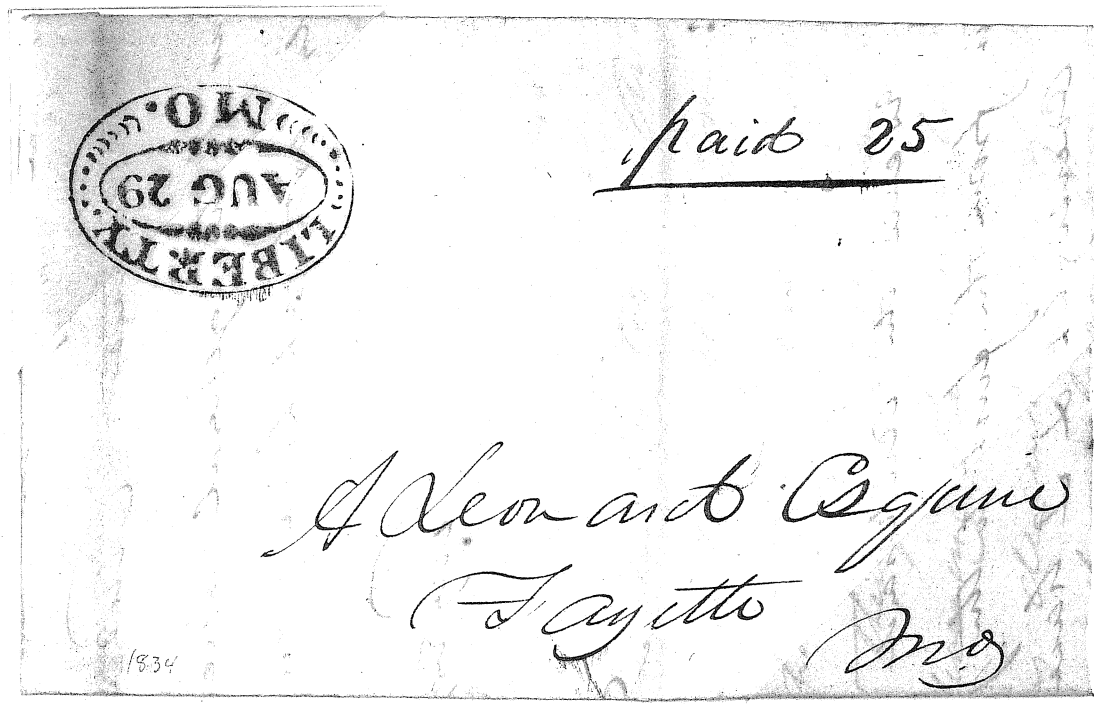 LIBERTY. MO.
AUG 29
paid 25
A Leonard Esquire
Fayette
Mo
1834